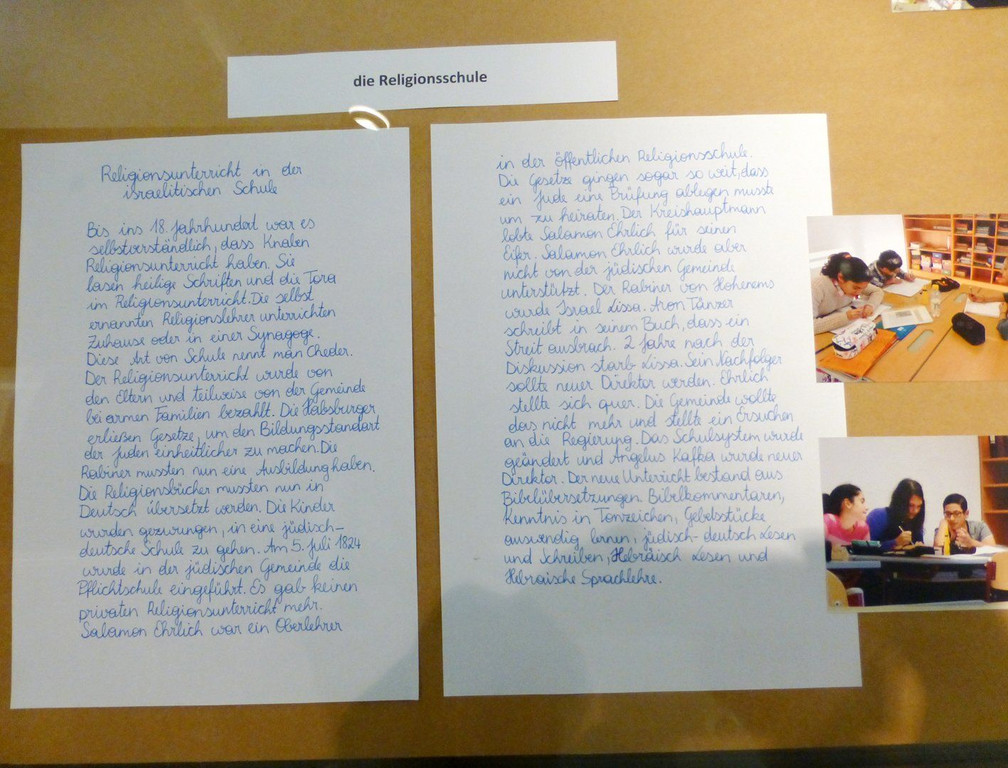 die Religionsschule
Religionsunterricht in der
israelitischen Schule
Bis ins 18. Jahrhundert war es
selbstverständlich, dass Knaben
Religionsunterricht haben. Sie
lasen heilige Schriften und die Tora
im Religionsunterricht. Die selbst
ernannten Religionslehrer unterrichten
Zuhause oder in einer Synagoge.
Diese Art von Schule nennt man Cheder.
Der Religionsunterricht wurde von
den Eltern und teilweise von der Gemeinde
bei armen Familien bezahlt. Die Habsburger
erließen Gesetze, um den Bildungsstandart
der Juden einheitlicher zu machen. Die
Rabiner mussten nun eine Ausbildung haben.
Die Religionsbücher mussten nun in
Deutsch übersetzt werden. Die Kinder
wurden gezwungen, in eine jüdisch-
deutsche Schule zu gehen. Am 5. Juli 1824
wurde in der jüdischen Gemeinde die
Pflichtschule eingeführt. Es gab keinen
privaten Religionsunterricht mehr.
Salamon Ehrlich war ein Oberlehrer
in der öffentlichen Religionsschule.
Die Gesetze gingen sogar so weit, dass
ein Jude eine Prüfung ablegen musste
um zu heiraten. Der Kreishauptmann
lobte Salamon Ehrlich für seinen
Eifer. Salamon Ehrlich wurde aber
nicht von der jüdischen Gemeinde
unterstützt. Der Rabiner von Hohenems
wurde Israel Lissa. Aron Tänzer
schreibt in seinem Buch, dass ein
Streit ausbrach. 2 Jahre nach der
Diskussion starb Lissa. Sein Nachfolger
sollte neuer Direktor werden. Ehrlich
stellte sich quer. Die Gemeinde wollte
das nicht mehr und stellte ein Ersuchen
an die Regierung. Das Schulsystem wurde
geändert und Angelus Kafka wurde neuer
Direktor. Der neue Unterricht bestand aus
Bibelübersetzungen. Bibelkommentaren,
Kenntnis in Tonzeichen, Gebetsstücke
auswendig lernen, jüdisch-deutsch Lesen
und Schreiben, Hebräisch Lesen und
Hebräische Sprachlehre.